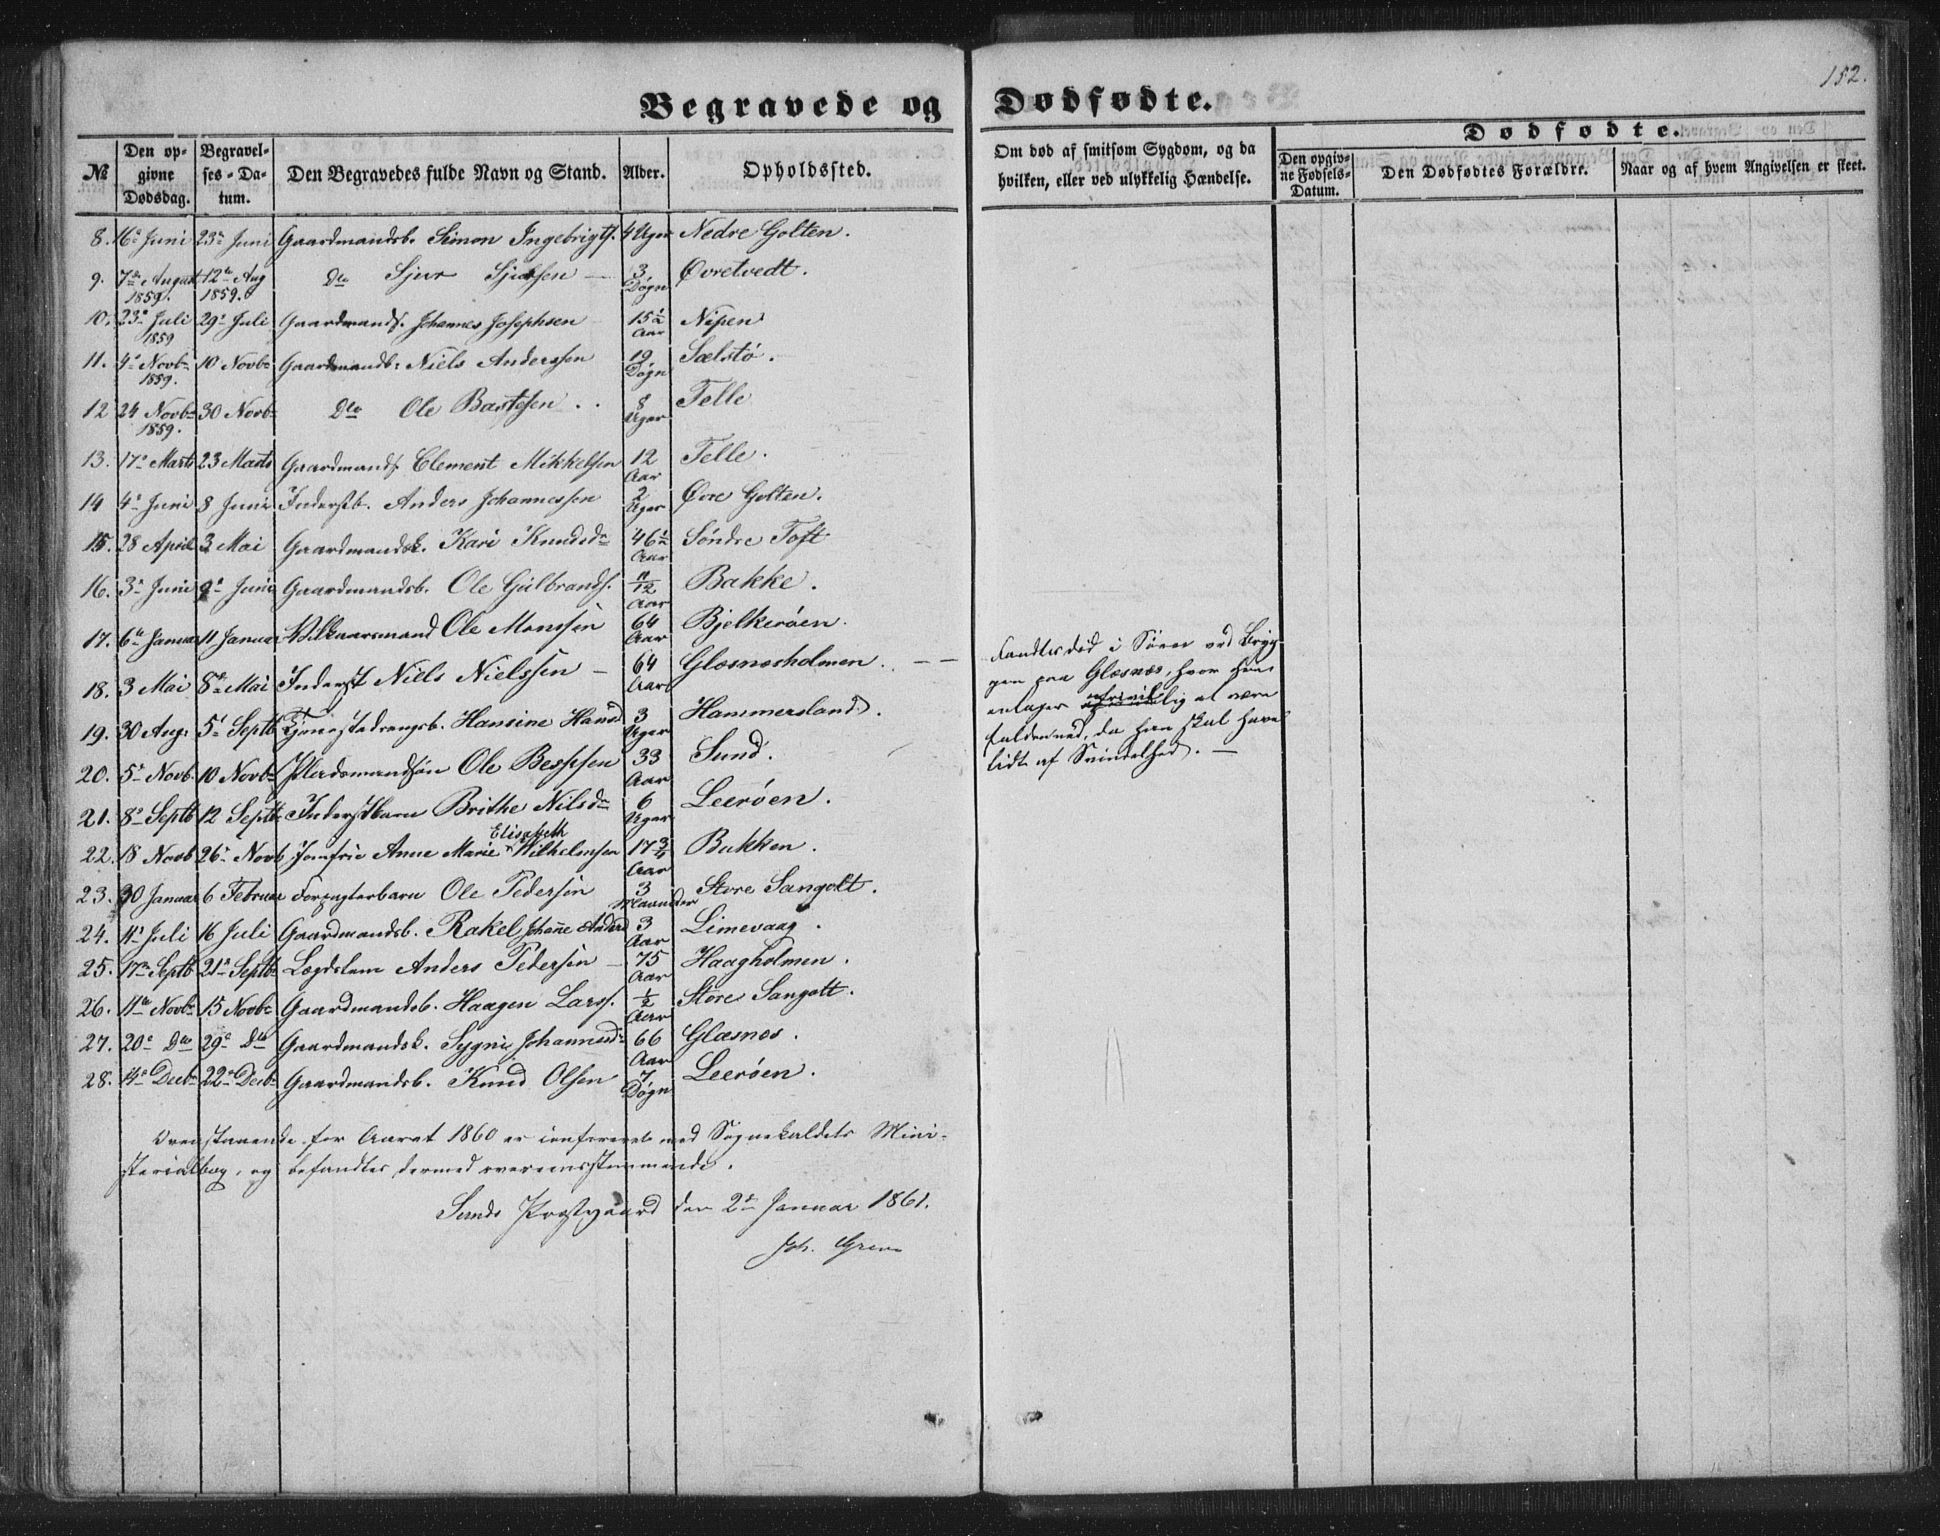 152.
Begravede og Dødfødte.
№ Den opgivne Dødsdag. Begravelses-Datum. Den Begravedes fulde Navn og Stand. Alder. Opholdssted. Om død af smitsom Sygdom, og da hvilken, eller ved ulykkelig Hændelse. Dødfødte. Den opgivne Fødsels-Datum. Den Dødfødtes Forældre. Naar og af hvem Angivelsen er skeet.
8. 16de Juni 23de Juni Gaardmandsb. Simon Ingebrigts. 4 Uger Nedre Golten.
9. 7de August 1859. 12te Aug 1859. Dto Sjur Sjursen 3 Døgn Øvretvedt.
10. 23de Juli 1859 29de Juli Gaardmands. Johannes Josephsen 15½ Aar Nipen
11. 4de Novbr 1859. 10 Novbr Gaardmandsb. Niels Anderssen 19 Døgn Sælstø.
12 24 Novbr 1859. 30 Novbr Dto Ole Bartesen 8 Uger Telle
13. 17de Marts 23 Marts Gaardmands. Clement Mikkelsen 12 Aar Telle.
14 4de Juni 8 Juni Inderstb. Anders Johannessen 2 Uger Øvre Golten.
15. 28 April 3 Mai Gaardmandsk. Kari Knudsdr 46½ Aar Søndre Toft
16. 3de Juni 9de Juni Gaardmandsb. Ole Gulbrands. 11/12 Aar Bakke.
17. 6te Januar 11 Januar Vilkaarsmand Ole Monssen 64 Aar Bjelkerøen.
18. 3 Mai 8de Mai Inderst Niels Nielssen 64 Aar Glesnesholmen. Fandtes død i Søen ved Bryg-
gen paa Glesnæs, hvor han
antages ufrivillig at være
falden ned, da han skal have
lidt af Svindelhed.
19. 30 Aug. 5te Septb Tjenestedrengsb. Hansine Hansd 3 Uger Hammersland.
20. 5te Novb. 10 Novbr Pladsmandsøn Ole Bessesen 33 Aar Sund.
21. 8de Septb 12 Septb. Inderstbarn Brithe Nilsdr 6 Uger Leerøen.
22. 18 Novb 26de Novb Jomfru Anne Marie Elisabeth Wilhelmsen 17¾ Aar Bukken.
23. 30 Januar 6 Februar Forpagterbarn Ole Pedersen 3 Maaneder Store Sangolt.
24. 11te Juli 16 Juli Gaardmandsb. Rakel Johanne Andersd 3 Aar Limevaag.
25. 17de Septb 21de Septbr Lægdslem Anders Pedersen 75 Aar Haagholmen.
26. 11te Novbr 15 Novbr Gaardmandsb. Haagen Larss. ½ Aar Store Sangolt.
27. 20de Dto 29de Dto Gaardmandsk. Sygni Johannesdr 66 Aar Glæsnes.
28. 14de Decbr 22de Decbr Gaardmandsb. Knud Olsen 7 Døgn Leerøen.
Ovenstaaende for Aaret 1860 er confereret med Sognekaldets Mini-
sterialbog, og befandtes dermed overeensstemmende.
Sunds Præstegaard den 2de Januar 1861.
Joh. Greve